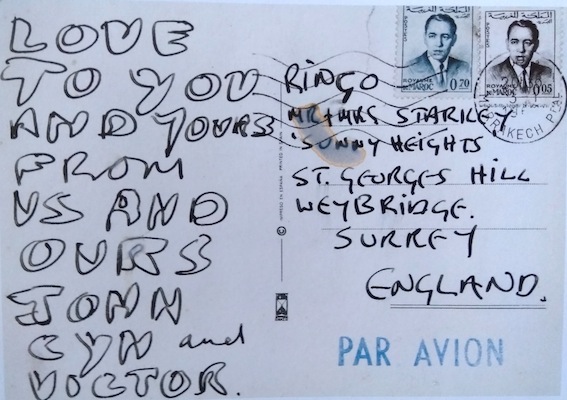 LOVE
TO YOU
AND YOURS
FROM
US AND
OURS
JOHN
CYN and
VICTOR.
RINGO
MR + MRS STARKEY
'SUNNY HEIGHTS'
ST. GEORGES HILL
WEYBRIDGE.
SURREY
ENGLAND.
PAR AVION
المملكة المغربية
POSTES
ROYAUME
DU MAROC
0,20
المملكة المغربية
POSTES
ROYAUME
DU MAROC
0,05